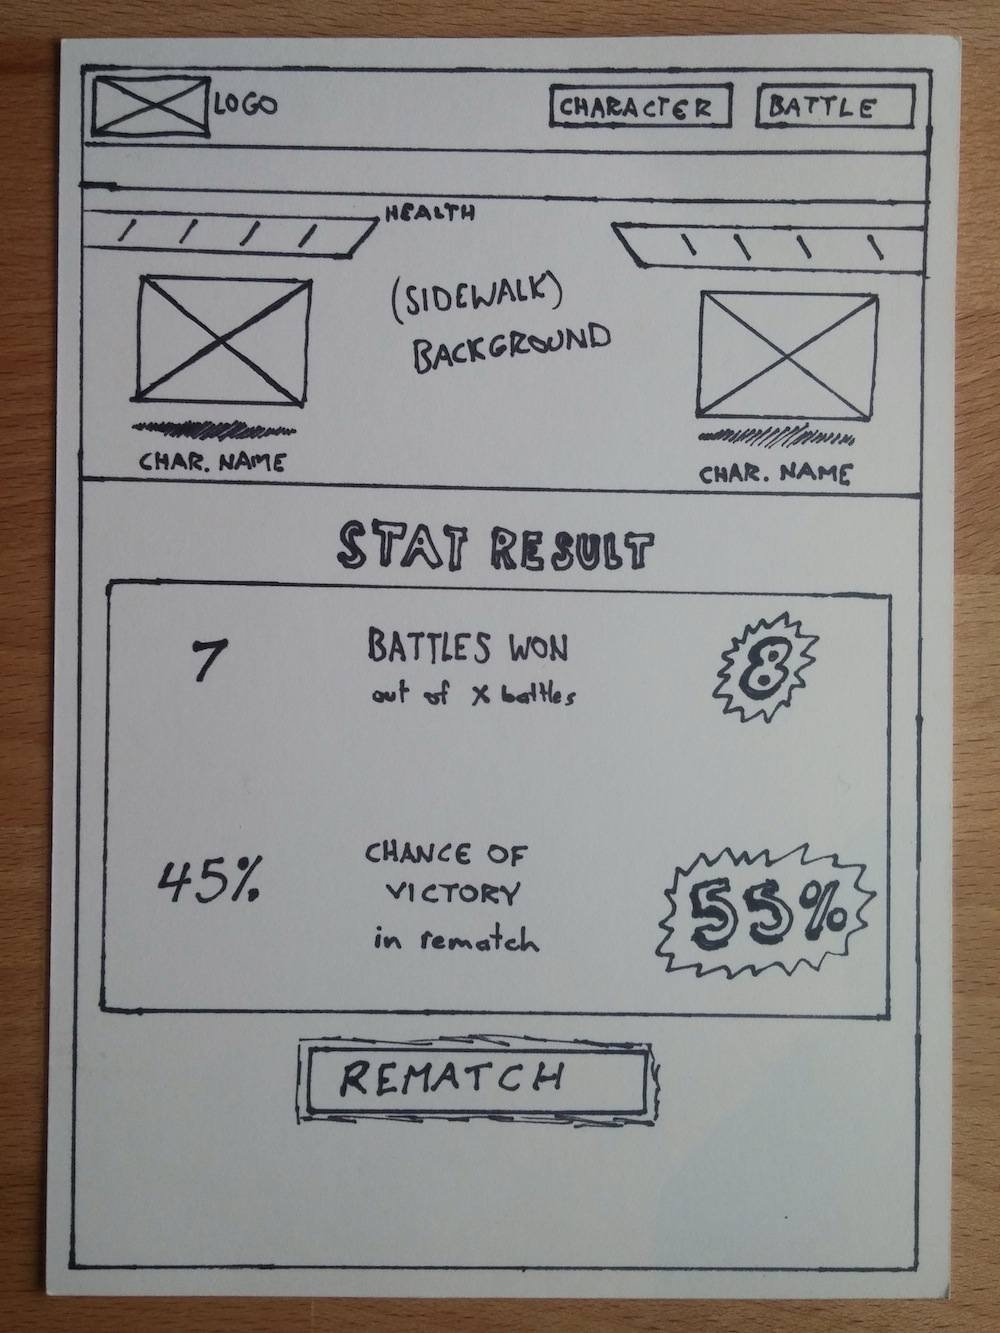 LOGO
CHARACTER
BATTLE
HEALTH
(SIDEWALK)
BACKGROUND
CHAR. NAME
CHAR. NAME
STAT RESULT
7
BATTLES WON
8
out of X battles
45%
CHANCE OF
VICTORY
55%
in rematch
REMATCH